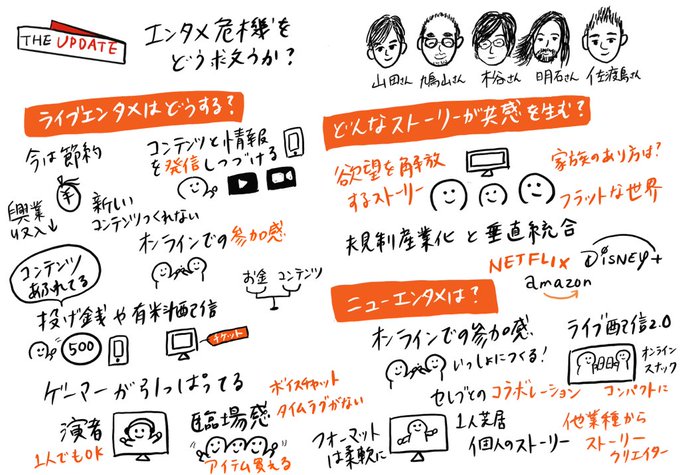 THE UPDATE
エンタメ危機を
どう救うか？
山田さん
鳩山さん
木谷さん
明石さん
佐渡島さん
ライブエンタメはどうする？
今は節約
¥
興業
収入↓
新しい
コンテンツつくれない
コンテンツと情報
を発信しつづける
オンラインでの参加感
コンテンツ
あふれてる
お金 コンテンツ
投げ銭や有料配信
500
チケット
ゲーマーが引っぱってる
演者
1人でもOK
臨場感
ボイスチャット
タイムラグがない
アイテム買える
どんなストーリーが共感を生む？
欲望を解放
するストーリー
家族のあり方は？
フラットな世界
規制産業化と垂直統合
NETFLIX
DISNEY+
amazon
ニューエンタメは？
オンラインでの参加感
いっしょにつくる！
ライブ配信2.0
オンライン
スナック
コンパクトに
セレブとのコラボレーション
フォーマット
は柔軟に
1人芝居
個人のストーリー
他業種から
ストーリー
クリエイター